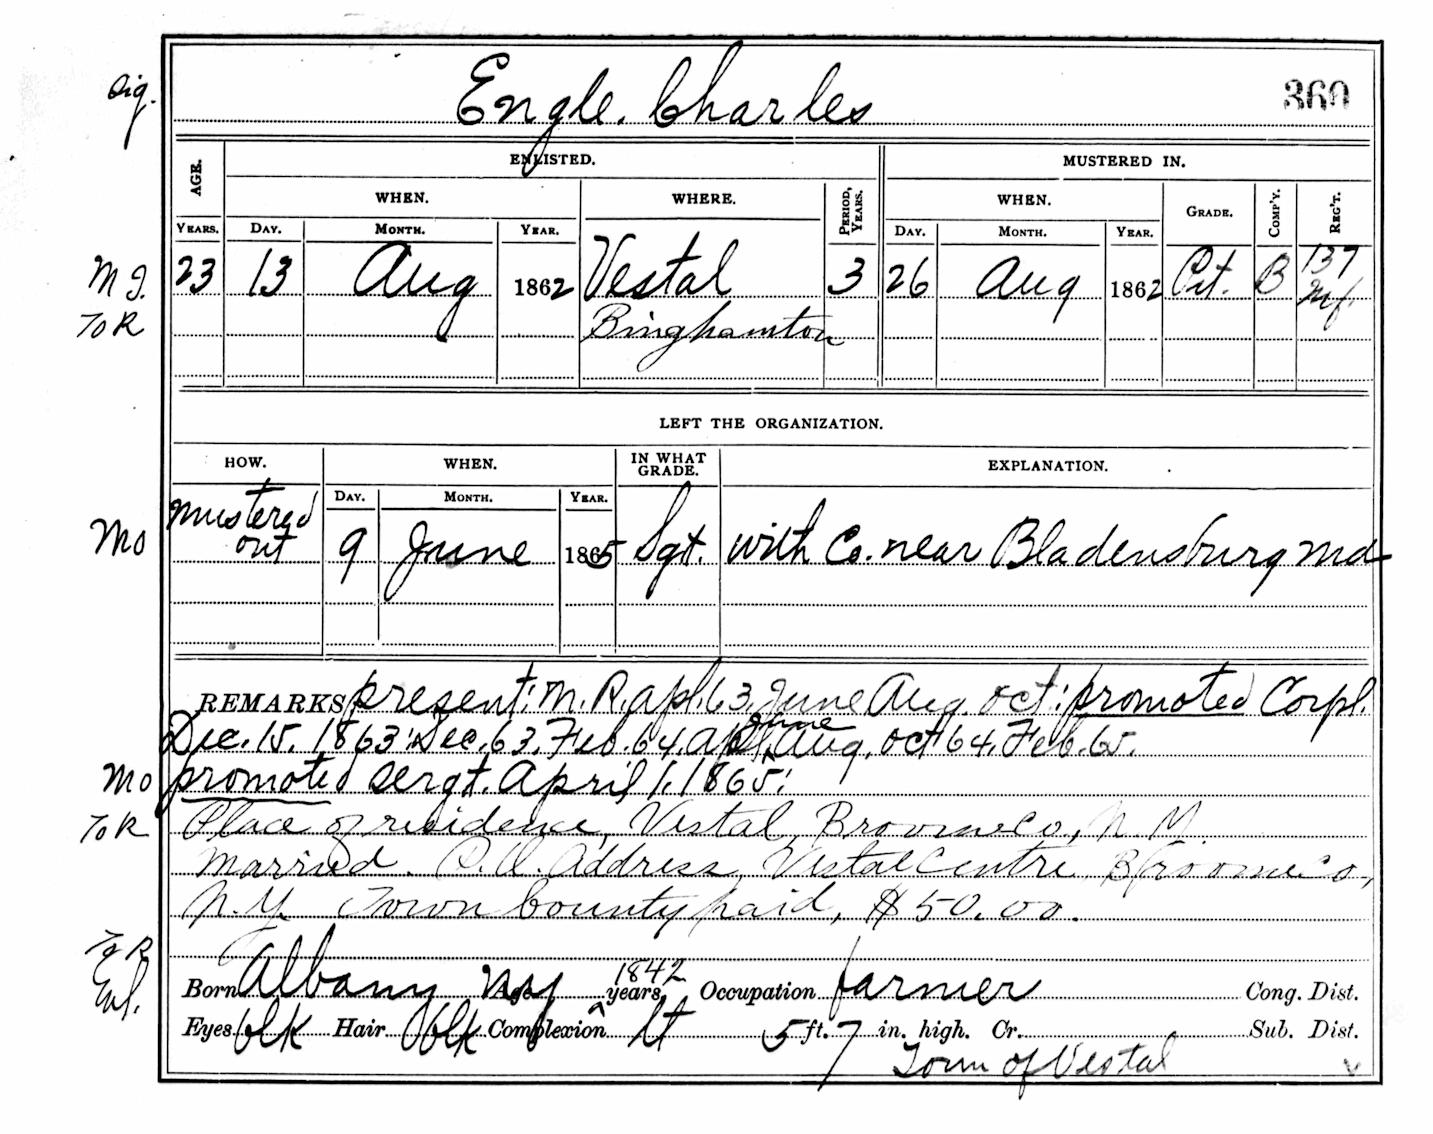 sig.
Engle. Charles
360
AGE.
ENLISTED.
MUSTERED IN.
WHEN.
WHERE.
PERIOD, YEARS.
WHEN.
GRADE.
COMP'Y.
REG'T.
YEARS.
DAY.
MONTH.
YEAR.
DAY.
MONTH.
YEAR.
M I.
23 13 Aug 1862 Vestal 3 26 Aug 1862 Pvt. B 137 Inf.
To R
Binghamton
LEFT THE ORGANIZATION.
HOW.
WHEN.
IN WHAT GRADE.
EXPLANATION.
DAY.
MONTH.
YEAR.
Mo
mustered out 9 June 1865 Sgt. with Co. near Bladensburg Md
REMARKS present: M. R. apl. 63, June Aug. oct: promoted Corpl.
Dec. 15. 1863: Dec. 63. Feb. 64. apl, June Aug. oct 64. Feb. 65.
Mo promoted sergt. April 1. 1865:
To R Place of residence, Vestal, Broome Co, N.
Married. P.O. Address, Vestal Centre, Broome Co,
N.Y. Town County paid, $50.00.
To R
Enl.
Born Albany NY Age 1842 years, Occupation farmer Cong. Dist.
Eyes blk Hair blk Complexion lt 5 ft. 7 in. high. Cr. Sub. Dist.
Town of Vestal
v